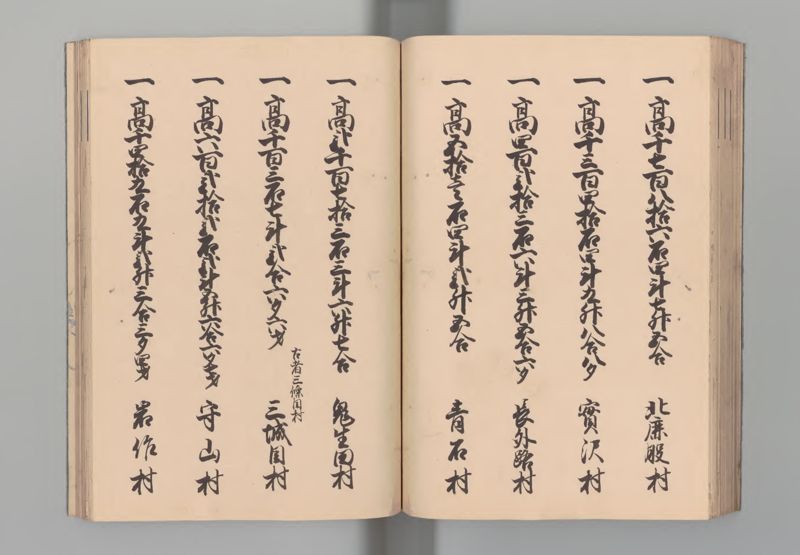 一 高千七百八拾六石四斗七升五合 北庶股村
一 高千三百四拾石四斗九升八合八夕 實沢村
一 高四百弐拾三石六斗三升五合六夕 長外路村
一 高五拾壱石四斗弐升五合 青石村
一 高弐千百七拾三石三斗六升七合 鬼生田村
古者三條目村
一 高千百三石七斗弐合六夕六才 三城目村
一 高六百弐拾弐石弐斗五升六合六夕七才 守山村
一 高千四拾九石九斗弐升三合三夕四才 岩作村